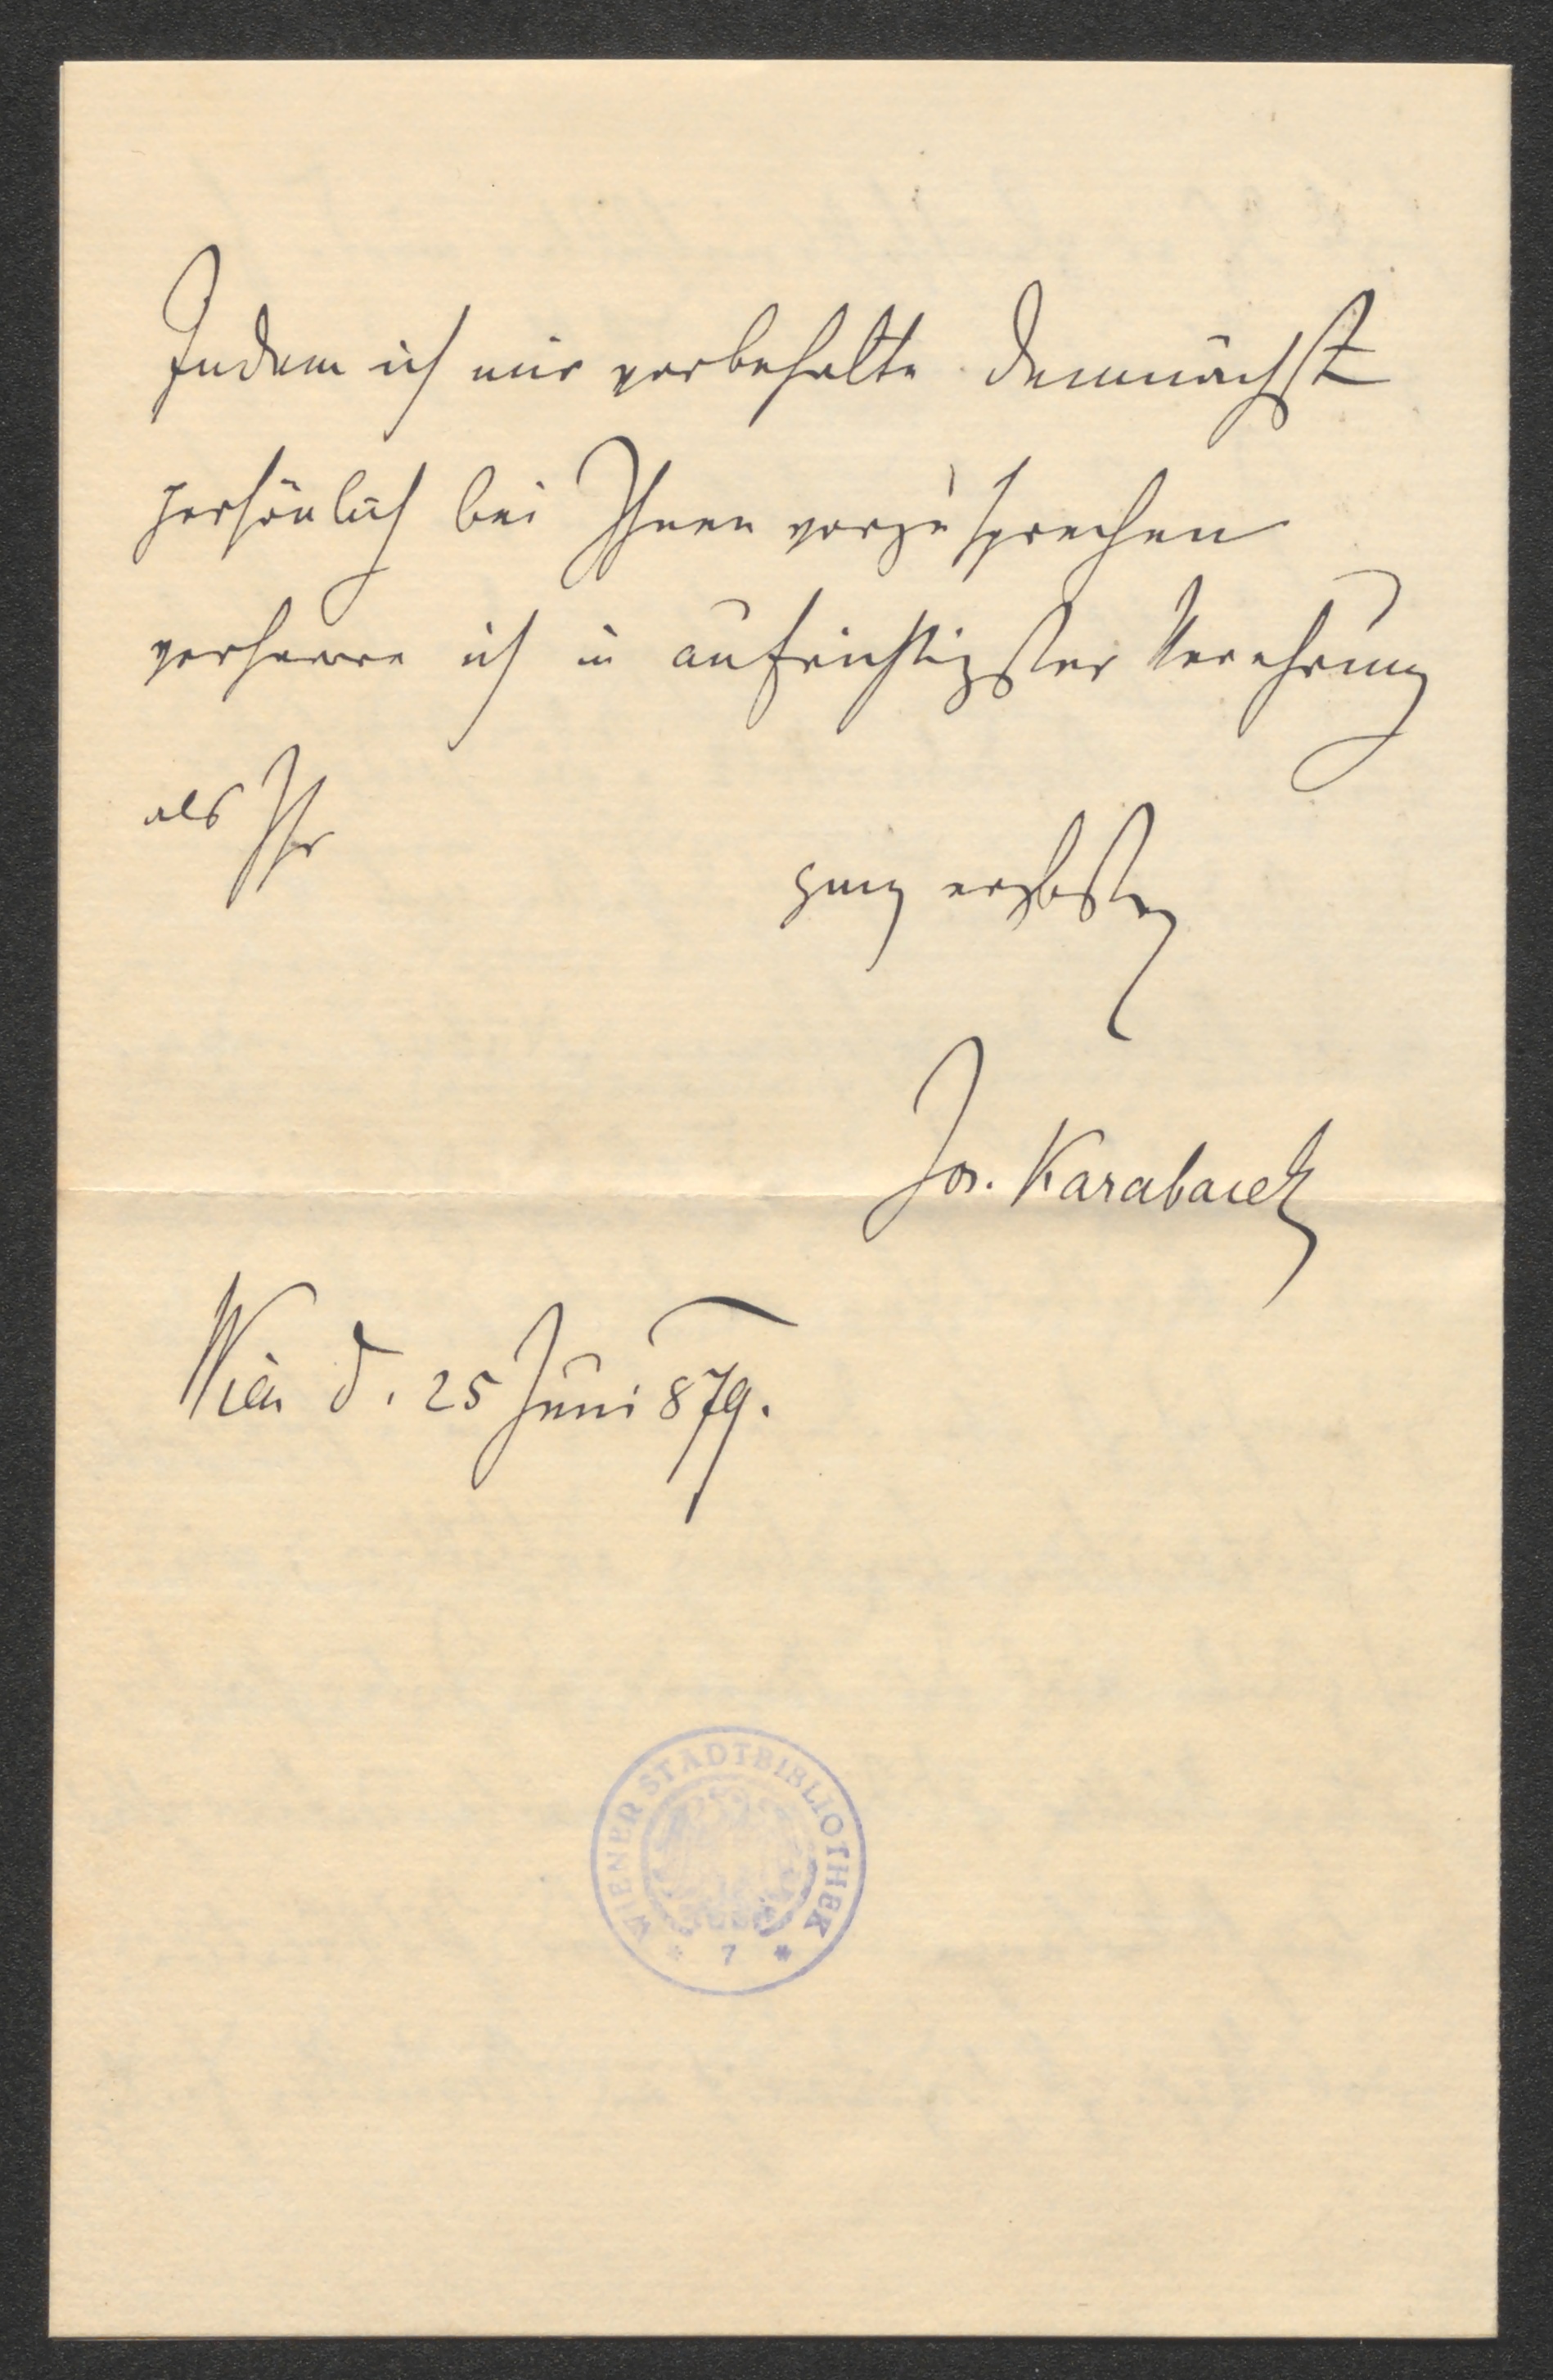 Indem ich mir vorbehalte demnächst
persönlich bei Ihnen vorzusprechen
verharre ich in aufrichtigster Verehrung
als Ihr
ganz ergbstr
Jos. Karabacek
Wien d. 25 Juni 879.
WIENER STADTBIBLIOTHEK
* 7 *